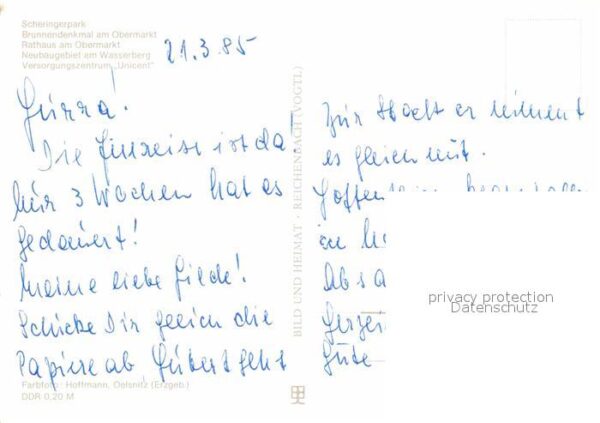 Scheringerpark
Brunnendenkmal am Obermarkt
Rathaus am Obermarkt
Neubaugebiet am Wasserberg
Versorgungszentrum „Unicent“
21.3.85
Hurra!
Die Einreise ist da!
Nur 3 Wochen hat es
gedauert!
Meine liebe Hilde!
Schicke Dir gleich die
Papiere ab, Hubert geht
Farbfoto: Hoffmann, Oelsnitz (Erzgeb.)
DDR 0,20 M
BILD UND HEIMAT · REICHENBACH (VOGTL.)
zur Stadt er nimmt
es gleich mit.
Hoffen
in
Absa
Herzei
Gute
privacy protection
Datenschutz